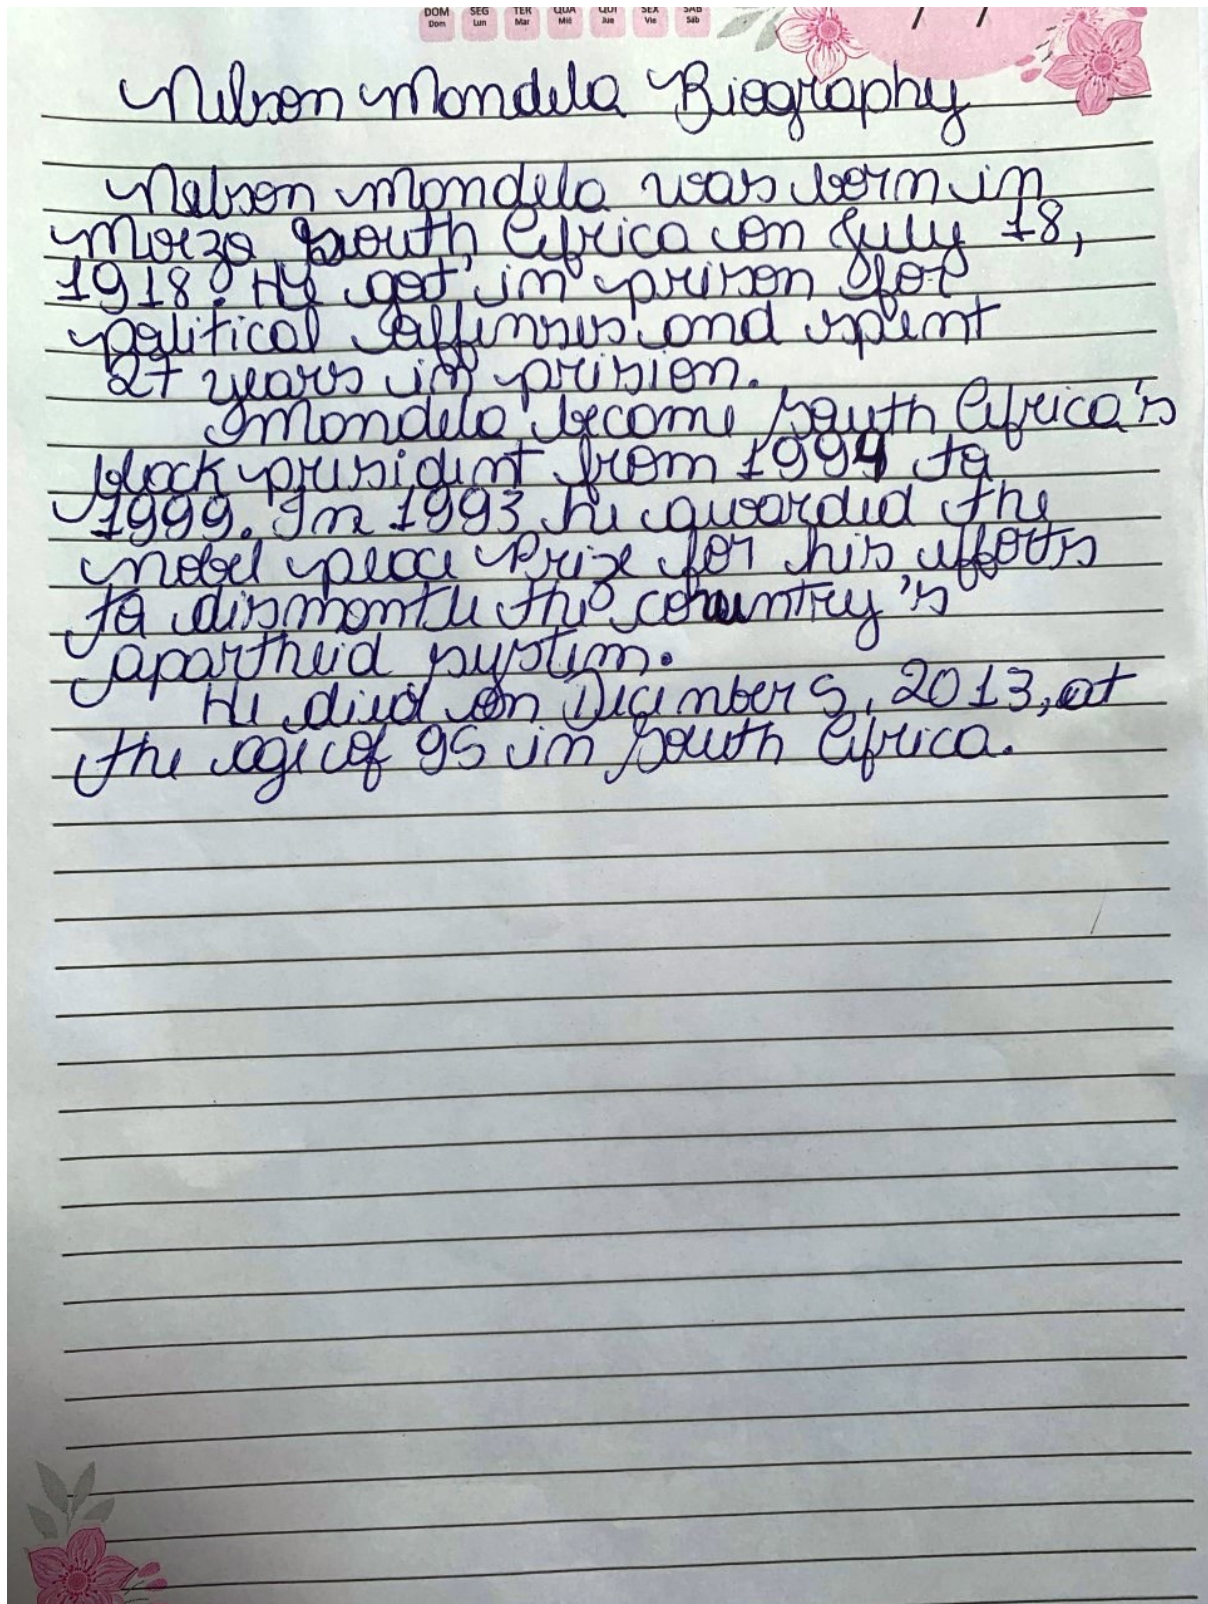 DOM SEG TER QUA QUI SEX SAB
Dom Lun Mar Mié Jue Vie Sáb
Nelson Mandela Biography
Nelson Mandela was born in
Mvezo, South Africa on July 18,
1918. He got in prison for
political offenses and spent
27 years in prision.
Mandela become South Africa's
black president from 1994 to
1999. In 1993 he awarded the
nobel peace Prize for his efforts
to dismantle the country's
apartheid system.
He died on December 5, 2013, at
the age of 95 in South Africa.